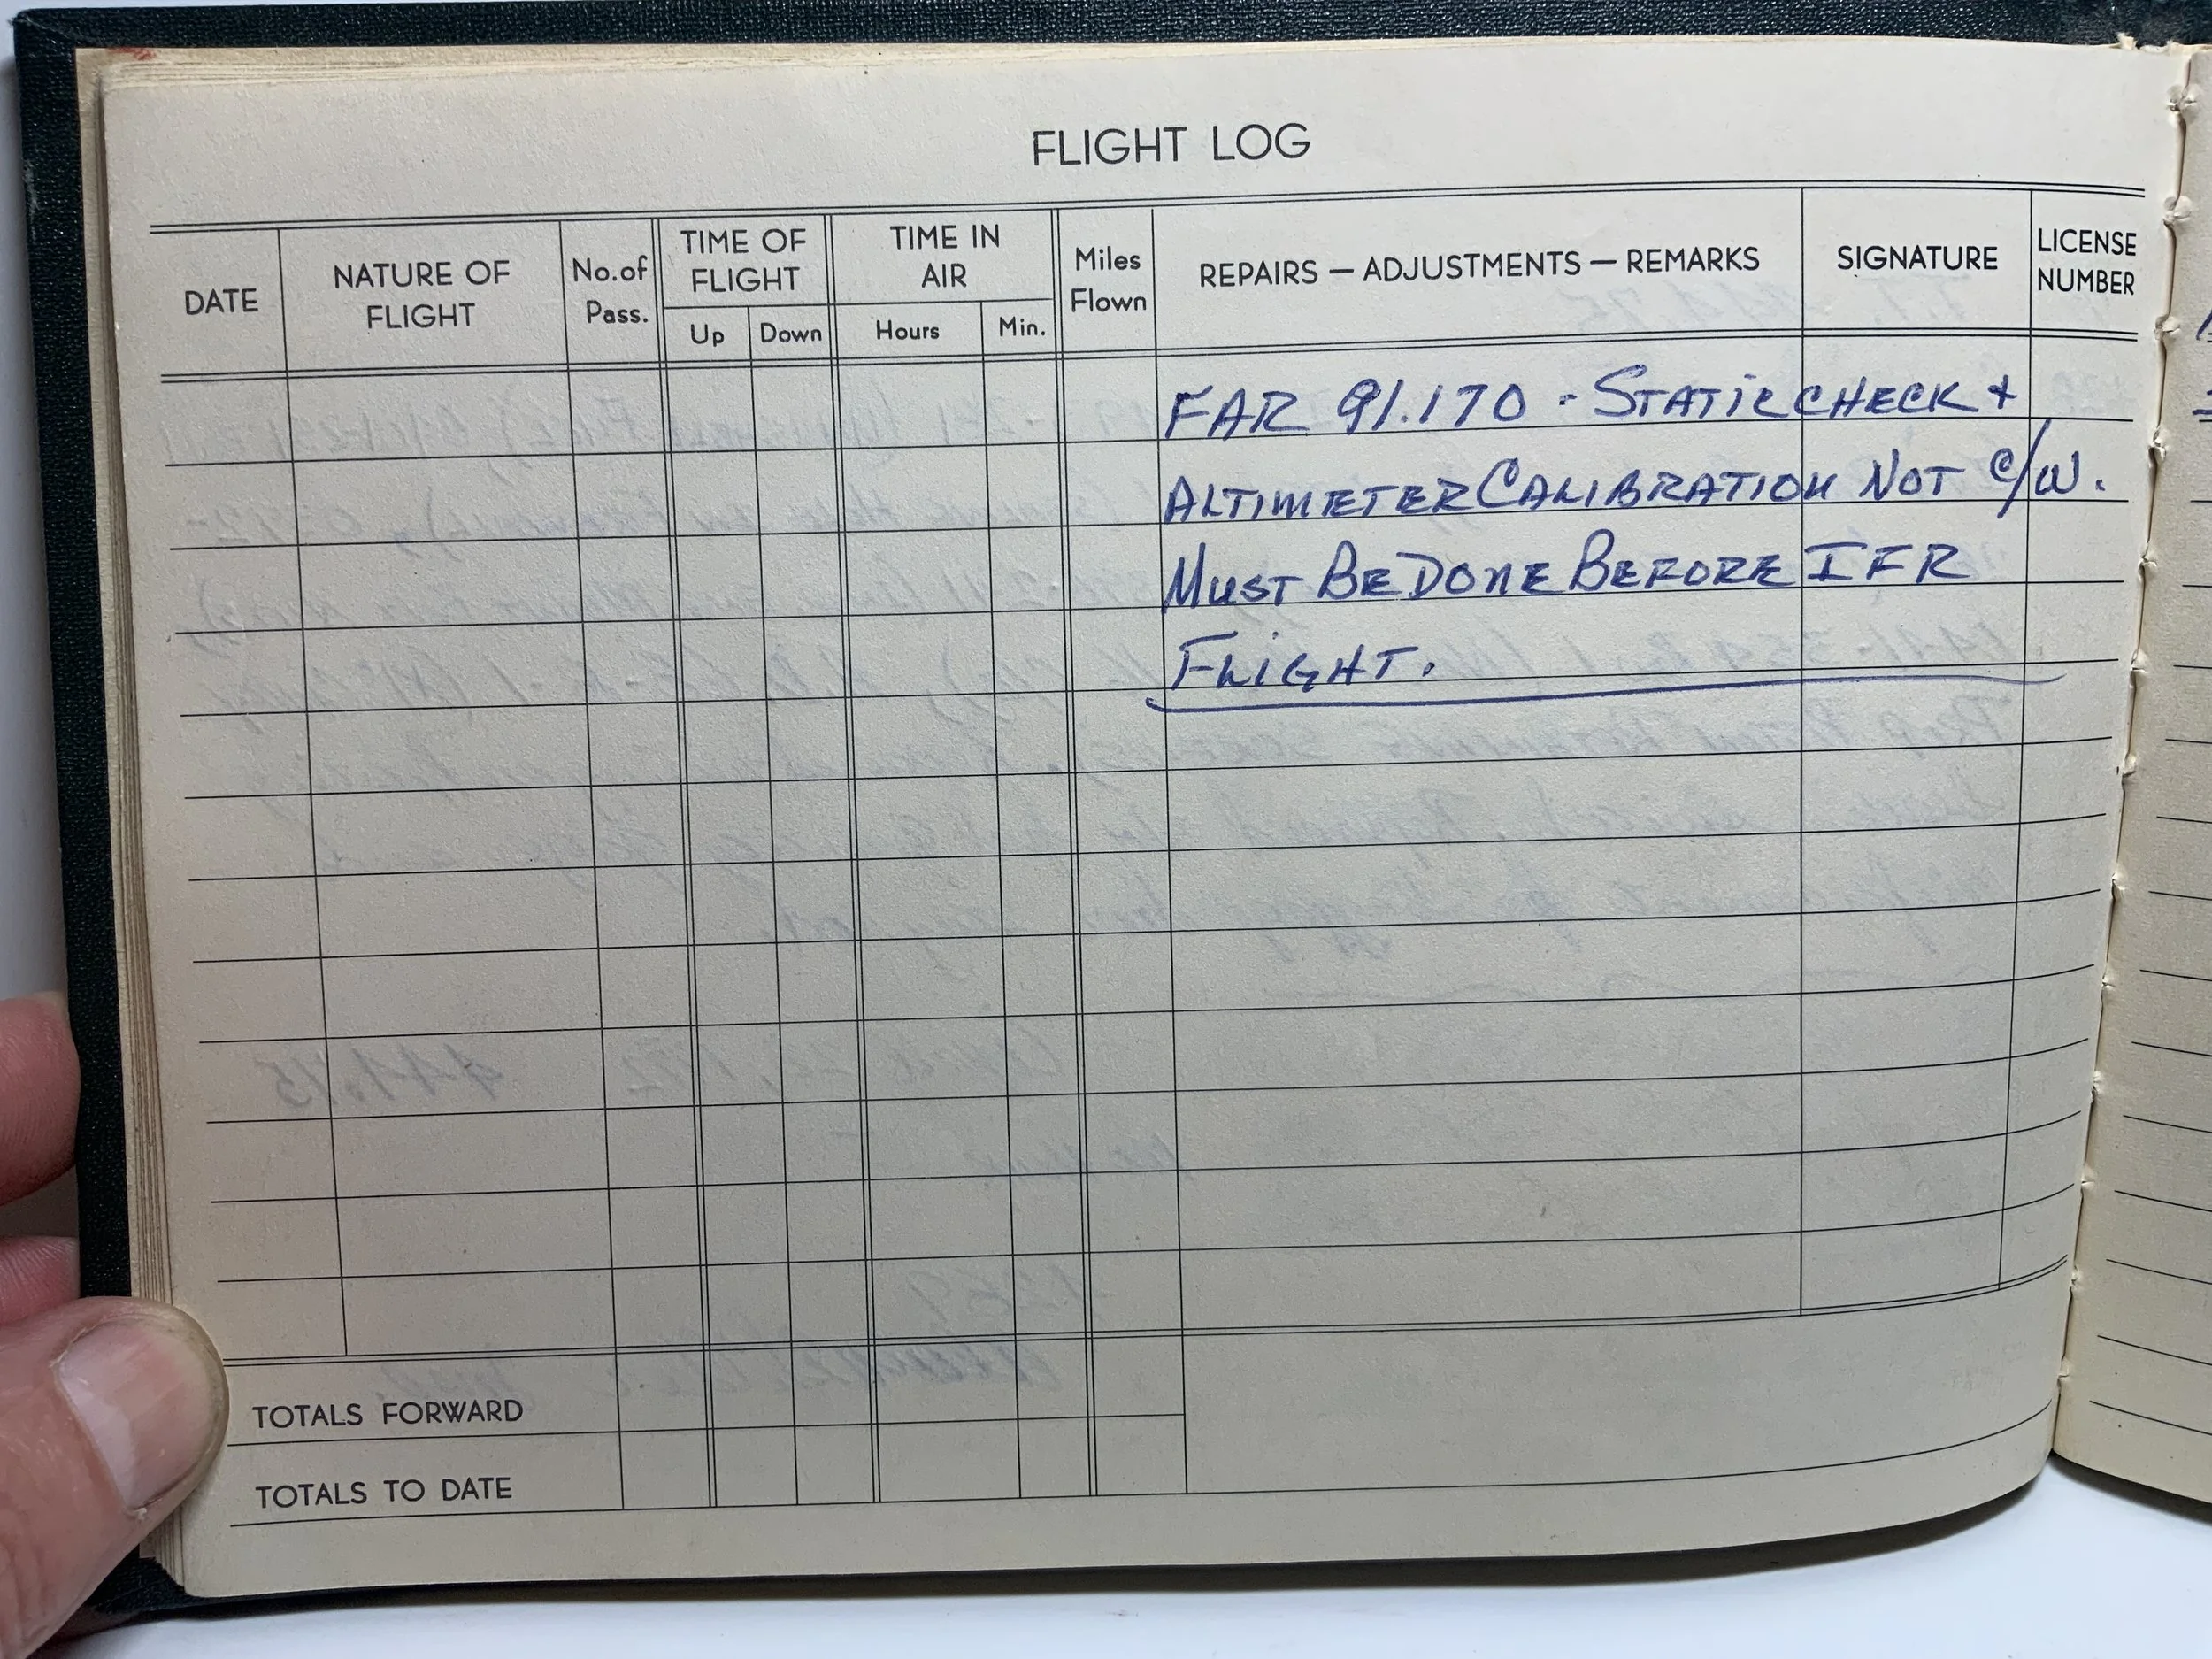 FLIGHT LOG
DATE
NATURE OF FLIGHT
No. of Pass.
TIME OF FLIGHT
Up
Down
TIME IN AIR
Hours
Min.
Miles Flown
REPAIRS — ADJUSTMENTS — REMARKS
SIGNATURE
LICENSE NUMBER
FAR 91.170 - STATIC CHECK +
ALTIMETER CALIBRATION NOT C/W.
MUST BE DONE BEFORE IFR
FLIGHT.
TOTALS FORWARD
TOTALS TO DATE